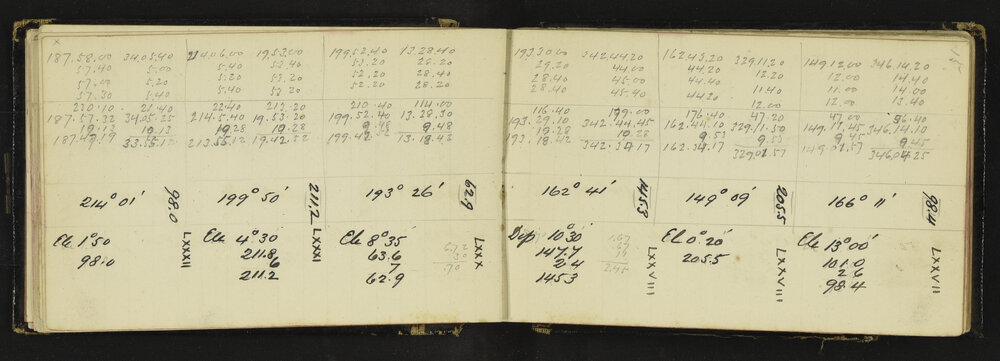 187.58.00 34.05.40 214.06.00 19.53.00 199.52.40 13.28.40
57.40 5.00 5.40 53.40 53.20 28.20
57.40 5.20 5.20 53.20 52.20 28.40
57.30 5.40 5.40 53.20 52.20 28.40
230.10 21.40 22.40 213.20 210.40 114.00
187.57.32 34.05.25 214.5.40 19.53.20 199.52.40 13.28.30
10.13 10.13 10.28 10.28 9.48 9.48
187.47.19 33.55.12 213.55.12 19.42.52 199.42.52 13.18.42
214° 01' 98.0 199° 50' 211.2 193° 26' 62.9
Ele 1°50 LXXXII Ele 4°30' LXXXI Ele 8°35' LXXX
98.0 211.8 63.6
6 7
211.2 62.9
193.30.00 342.44.20 162.43.20 329.11.20 149.12.00 346.14.20
29.20 44.00 44.20 12.20 12.00 14.40
28.40 45.00 44.40 11.40 11.00 14.00
28.40 45.40 44.20 12.00 12.00 13.40
116.40 199.00 176.40 47.20 47.00 56.40
193.29.10 342.44.45 162.44.10 329.11.50 149.11.45 346.14.10
10.28 10.28 9.53 9.53 9.45 9.45
193.18.42 342.34.17 162.34.17 329.01.57 149.01.57 346.04.25
162° 41' 145.3 149° 09' 205.5 166° 11' 98.4
Dep 10°30' LXXVIII El 0°20' LXXVIII Ele 13°00' LXXVII
147.7 205.5 101.0
2.4 2.6
145.3 98.4